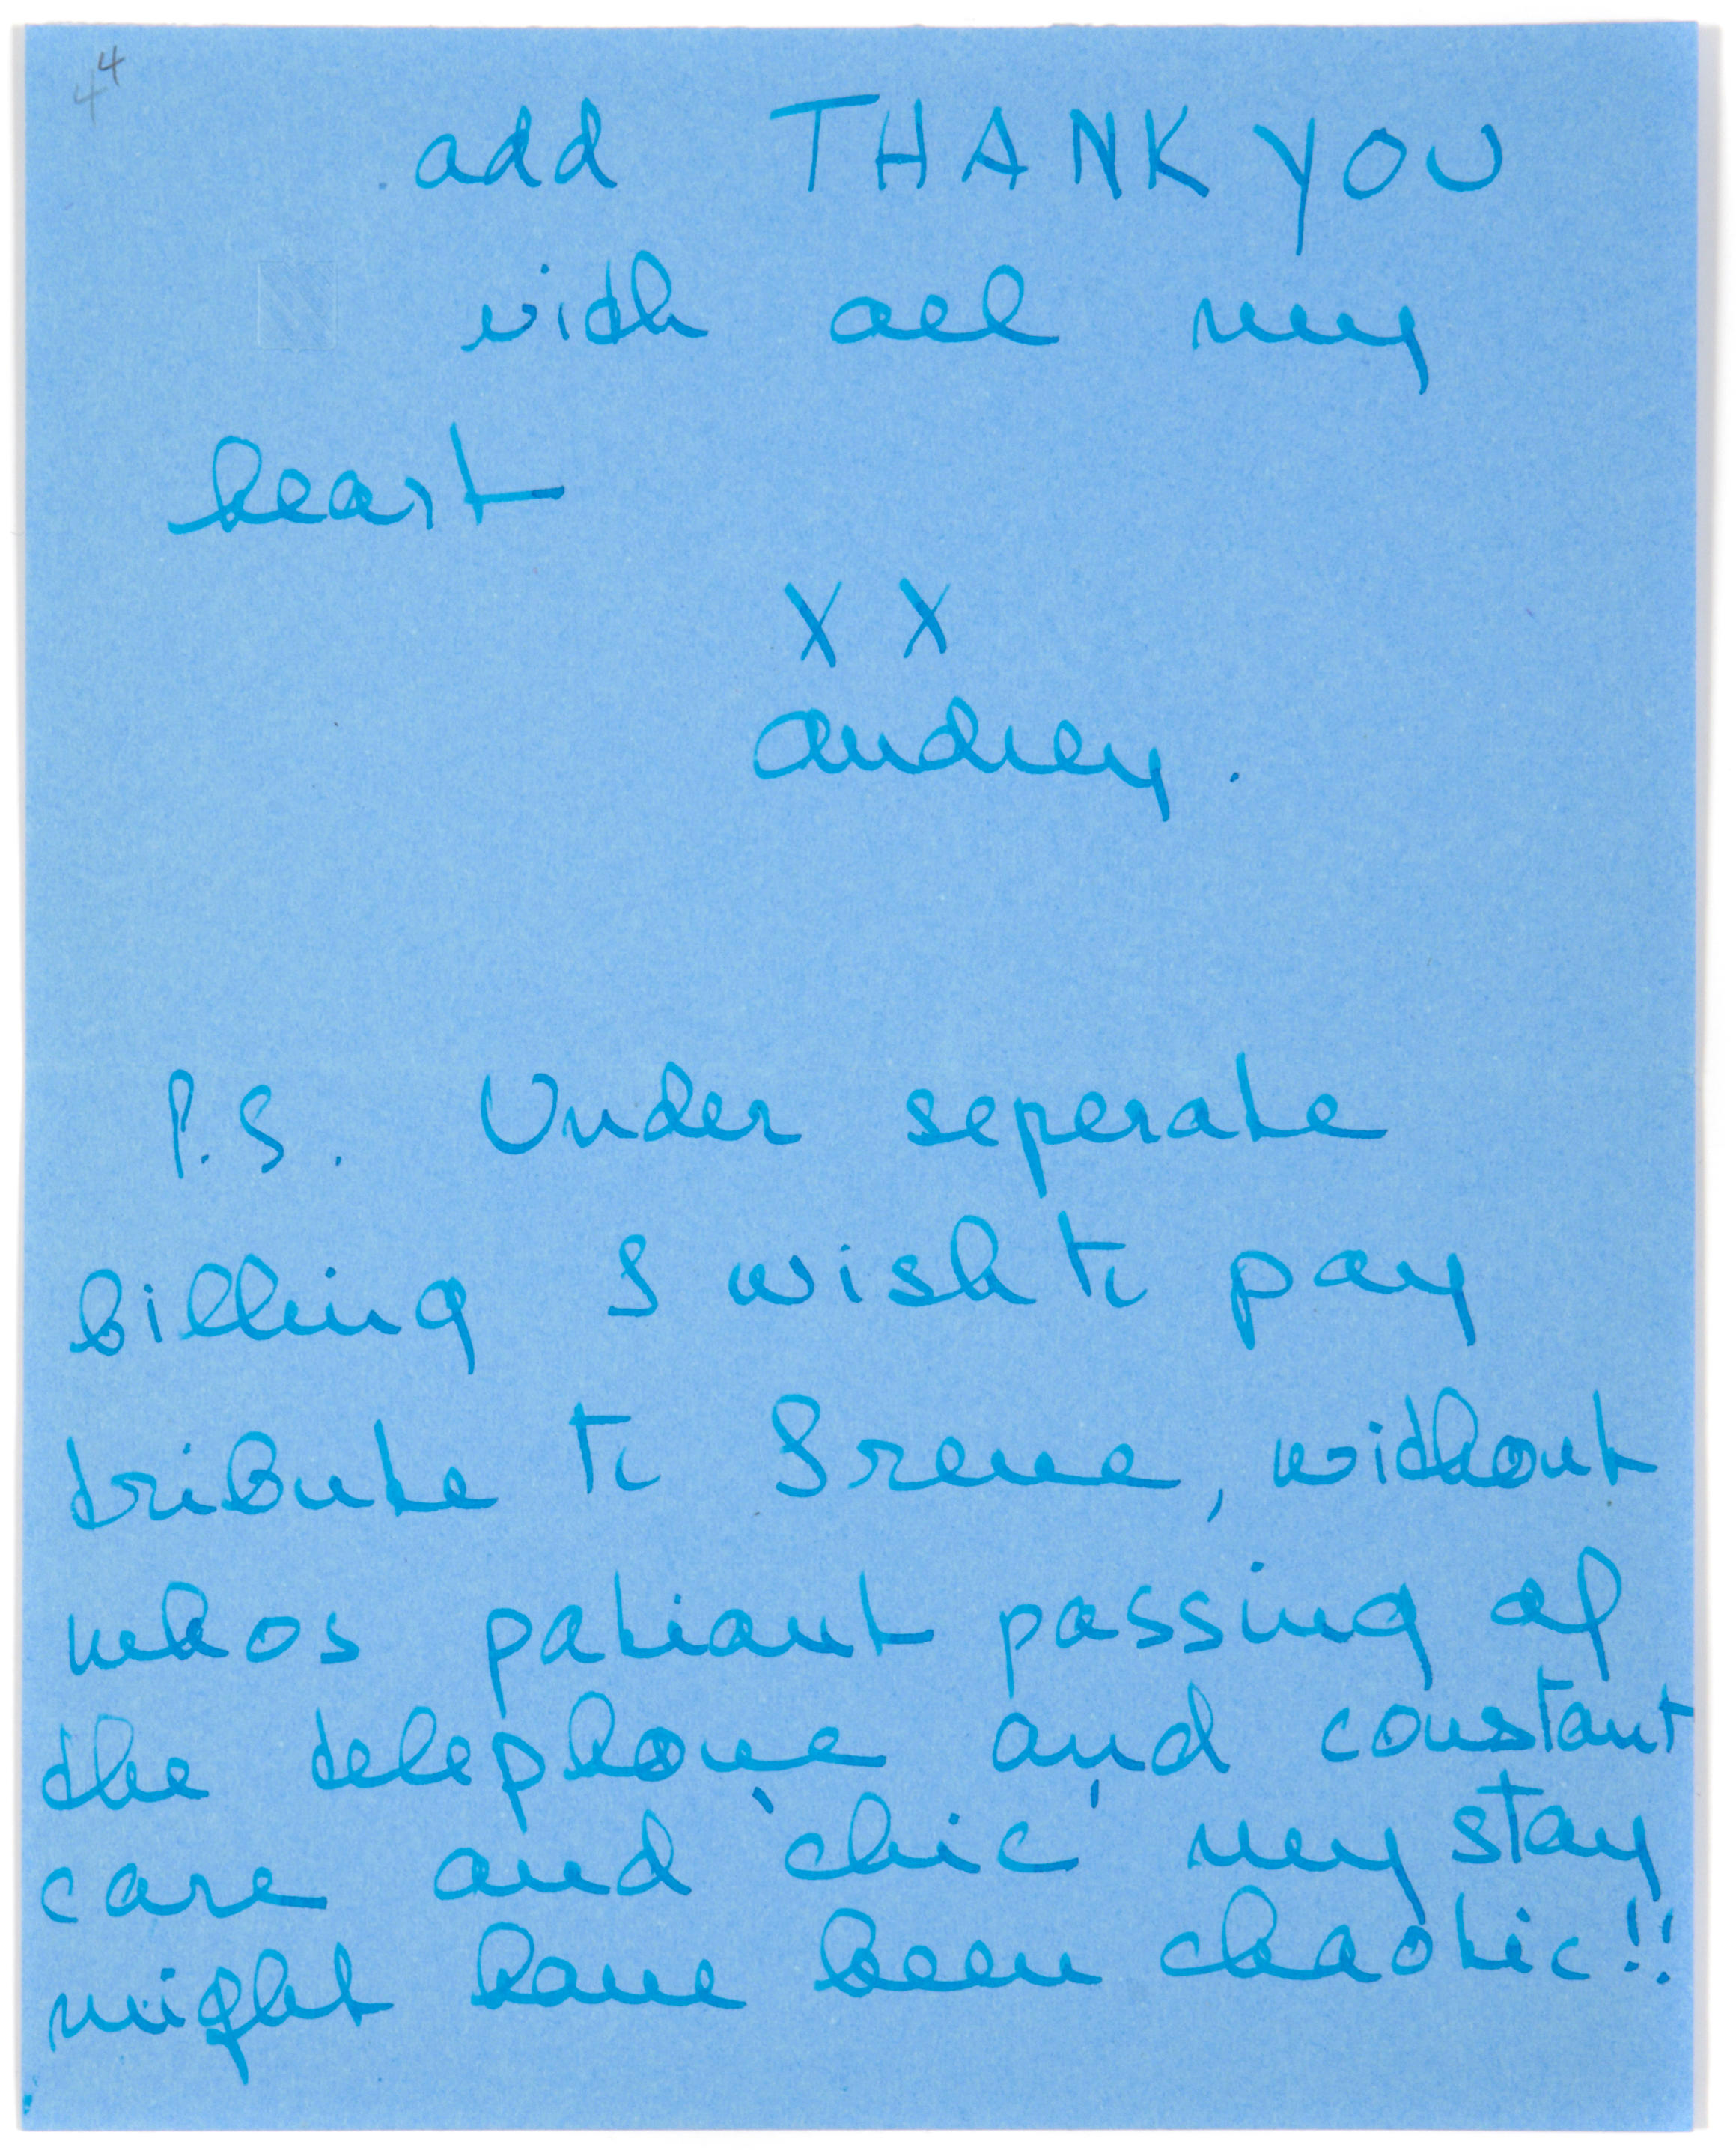 4 4
add THANK YOU
with all my
heart
X X
Audrey.
P.S. Under seperate
billing I wish to pay
tribute to Irene, without
whos patiant passing of
the telephone and constant
care and 'chic' my stay
might have been chaotic!!